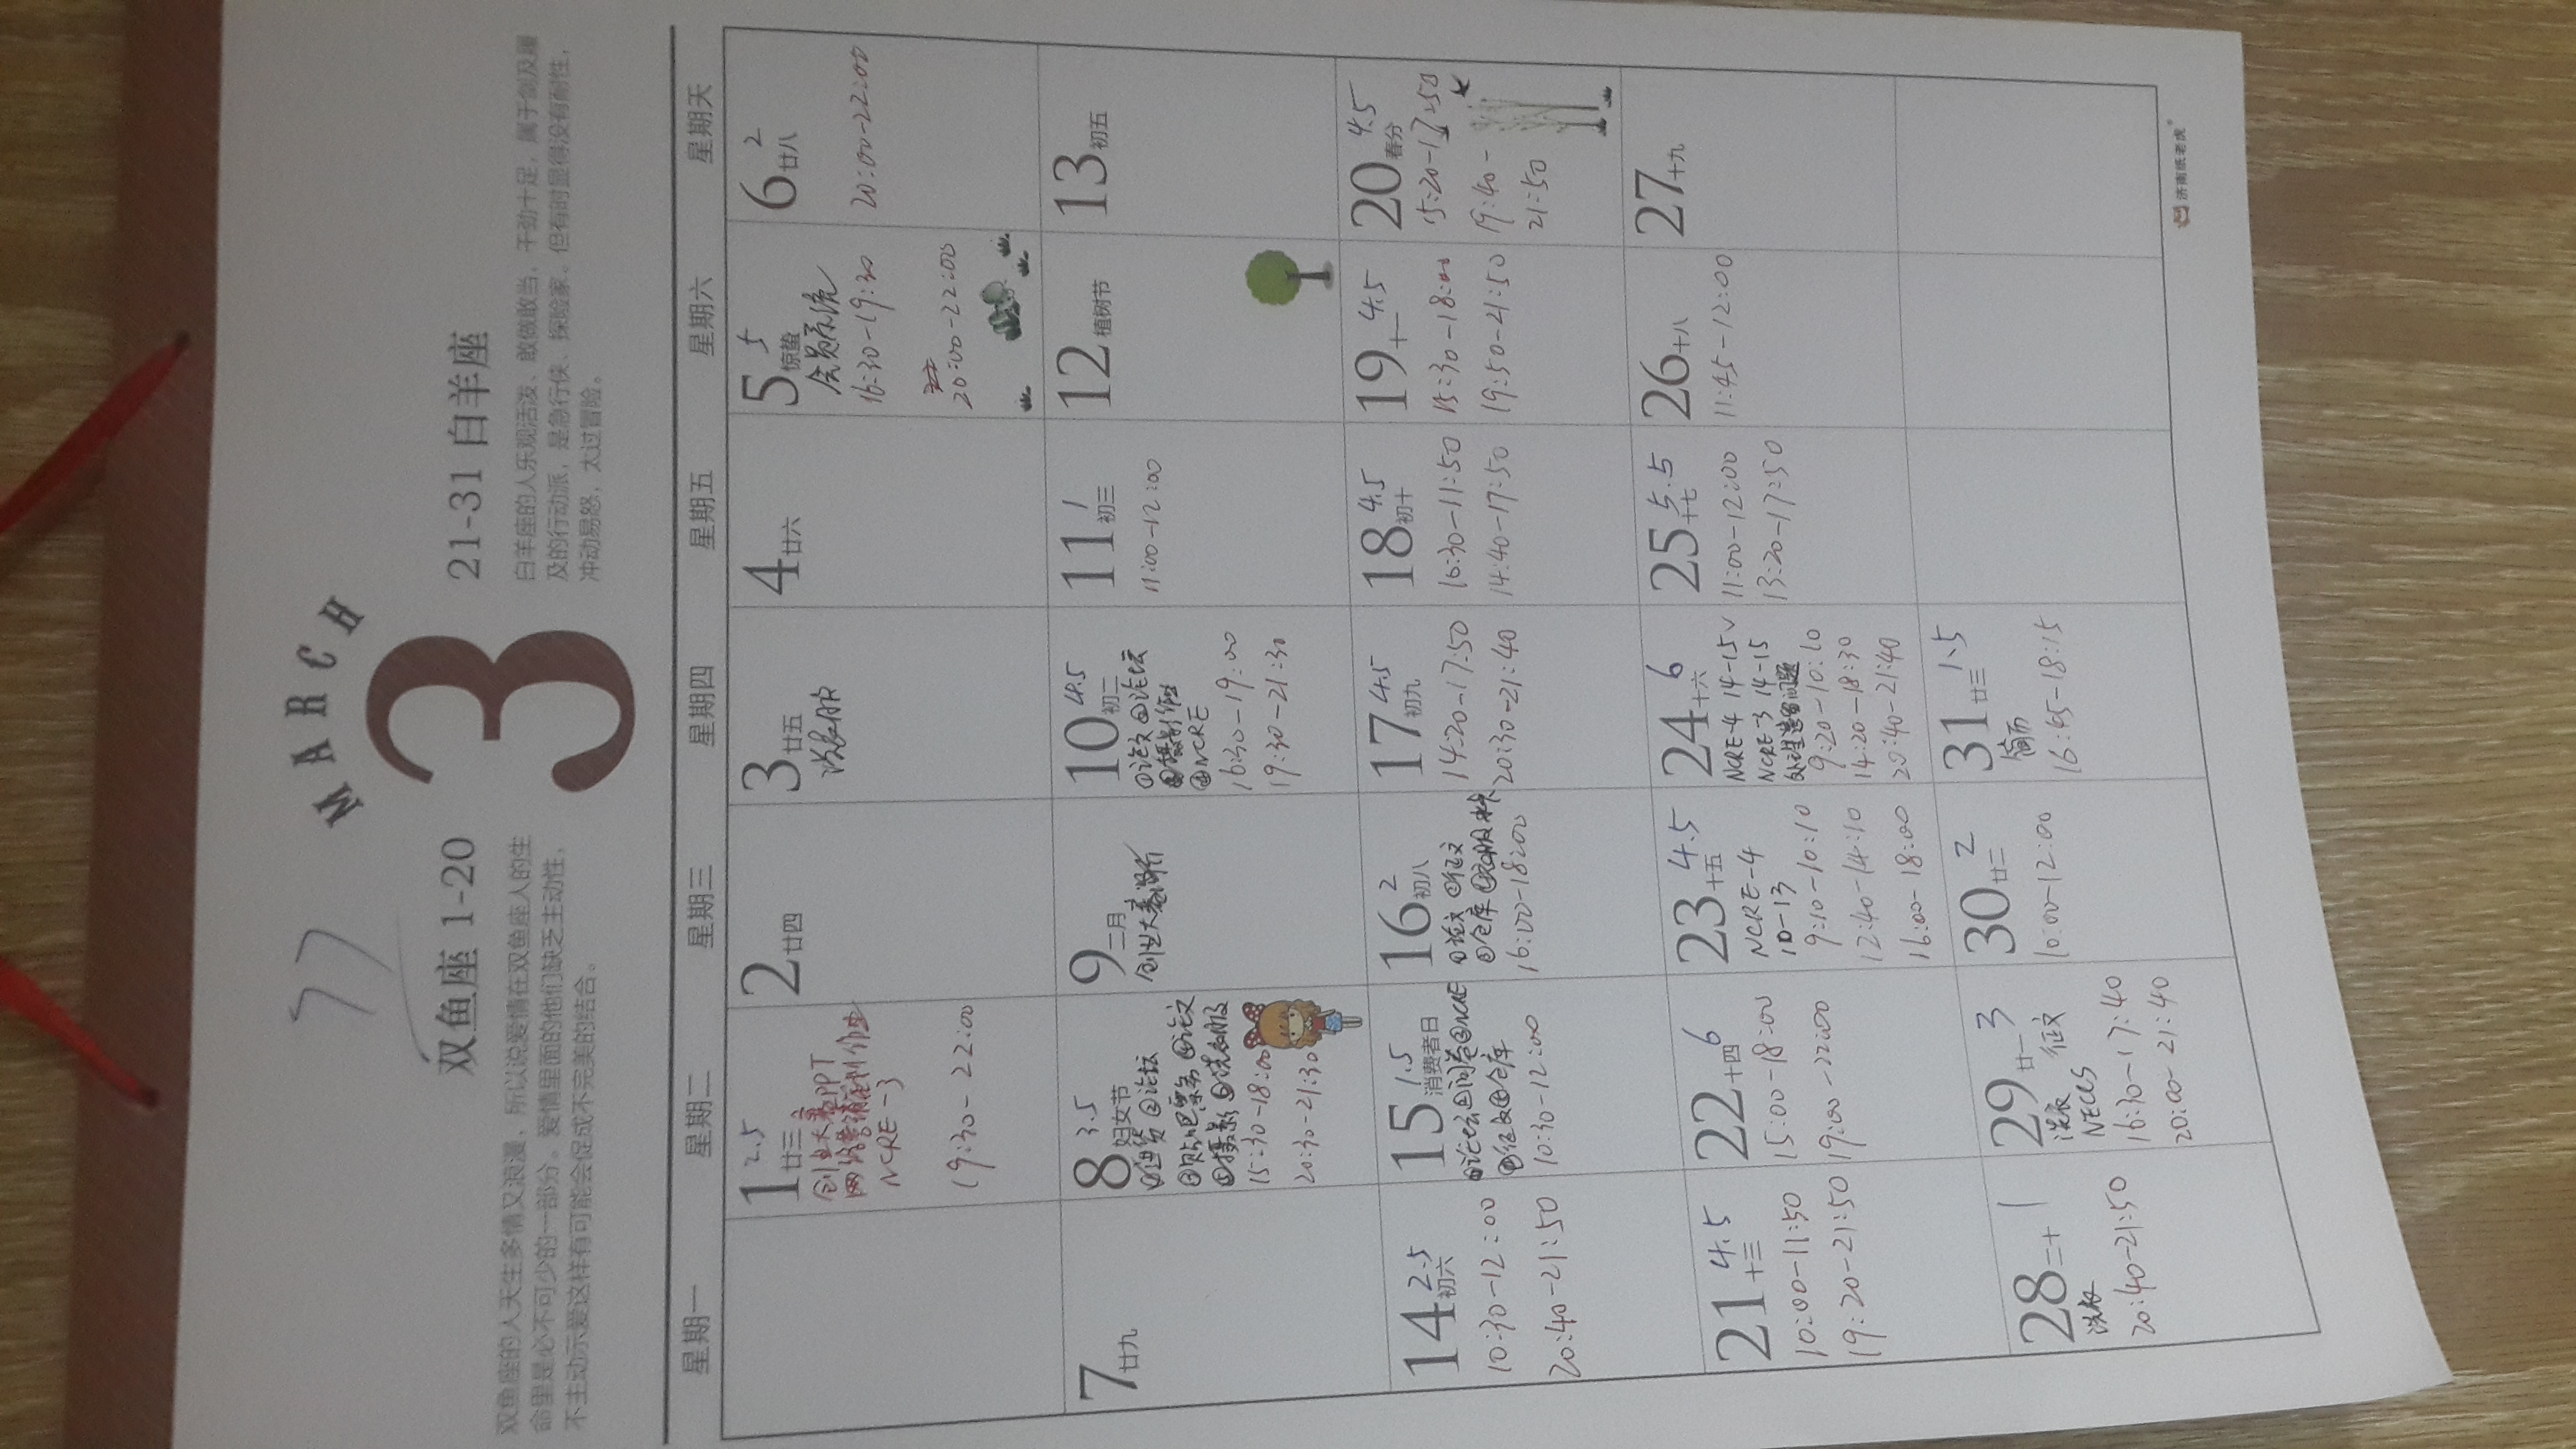 77
MARCH
3
双鱼座 1-20
双鱼座的人天生多情又浪漫，所以说爱情在双鱼座人的生
命里是必不可少的一部分。爱情里面的他们缺乏主动性，
不主动示爱这样有可能会促成不完美的结合。
21-31 白羊座
白羊座的人乐观活泼、敢做敢当，干劲十足，属于剑及履
及的行动派，是急行侠、探险家。但有时显得没有耐性，
冲动易怒，太过冒险。
星期一 星期二 星期三 星期四 星期五 星期六 星期天
1 2.5
廿三
创业大赛PPT
网络营销策划作业
NCRE-3
19:30-22:00
2 廿四
3 廿五
洗衣服
4 廿六
5 5
惊蛰
会员系统
16:30-19:30
20:00-22:00
6 2
廿八
20:00-22:00
7 廿九
8 3.5
妇女节
①进货 ②论坛
③贴吧票务 ④论文
⑤摄影 ⑥洗衣服
15:30-18:00
20:30-21:30
9 二月
创业大赛
10 4.5
初二
①论文 ②论坛
③摄影作业
④NCRE
16:30-19:00
19:30-21:30
11 1
初三
11:00-12:00
12 植树节
13 初五
14 2.5
初六
10:30-12:00
20:40-21:50
15 1.5
消费者日
①论坛②问卷③NCRE
征文 仓库
10:30-12:00
16 2
初八
①论文 ②征文
③仓库
16:00-18:00
17 4.5
初九
14:20-17:50
20:30-21:40
18 4.5
初十
10:30-11:50
14:40-17:50
19 4.5
十一
15:30-18:00
19:50-21:50
20 4.5
春分
15:20-17:50
19:40-
21:50
21 4.5
十三
10:00-11:50
19:20-21:50
22 6
十四
15:00-18:00
19:00-22:00
23 4.5
十五
NCRE-4
10-13
9:10-10:10
12:40-14:10
16:00-18:00
24 6
十六
NCRE-4 14-15√
NCRE-3 14-15
处理遗留问题
9:20-10:10
14:20-18:30
20:40-21:40
25 5.5
十七
11:00-12:00
13:20-17:50
26 十八
11:45-12:00
27 十九
28 1
二十
洗衣
20:40-21:50
29 3
廿一
洗衣 征文
NECCS
16:30-17:40
20:00-21:40
30 2
廿二
10:00-12:00
31 1.5
廿三
简历
16:45-18:15
济南纸老虎